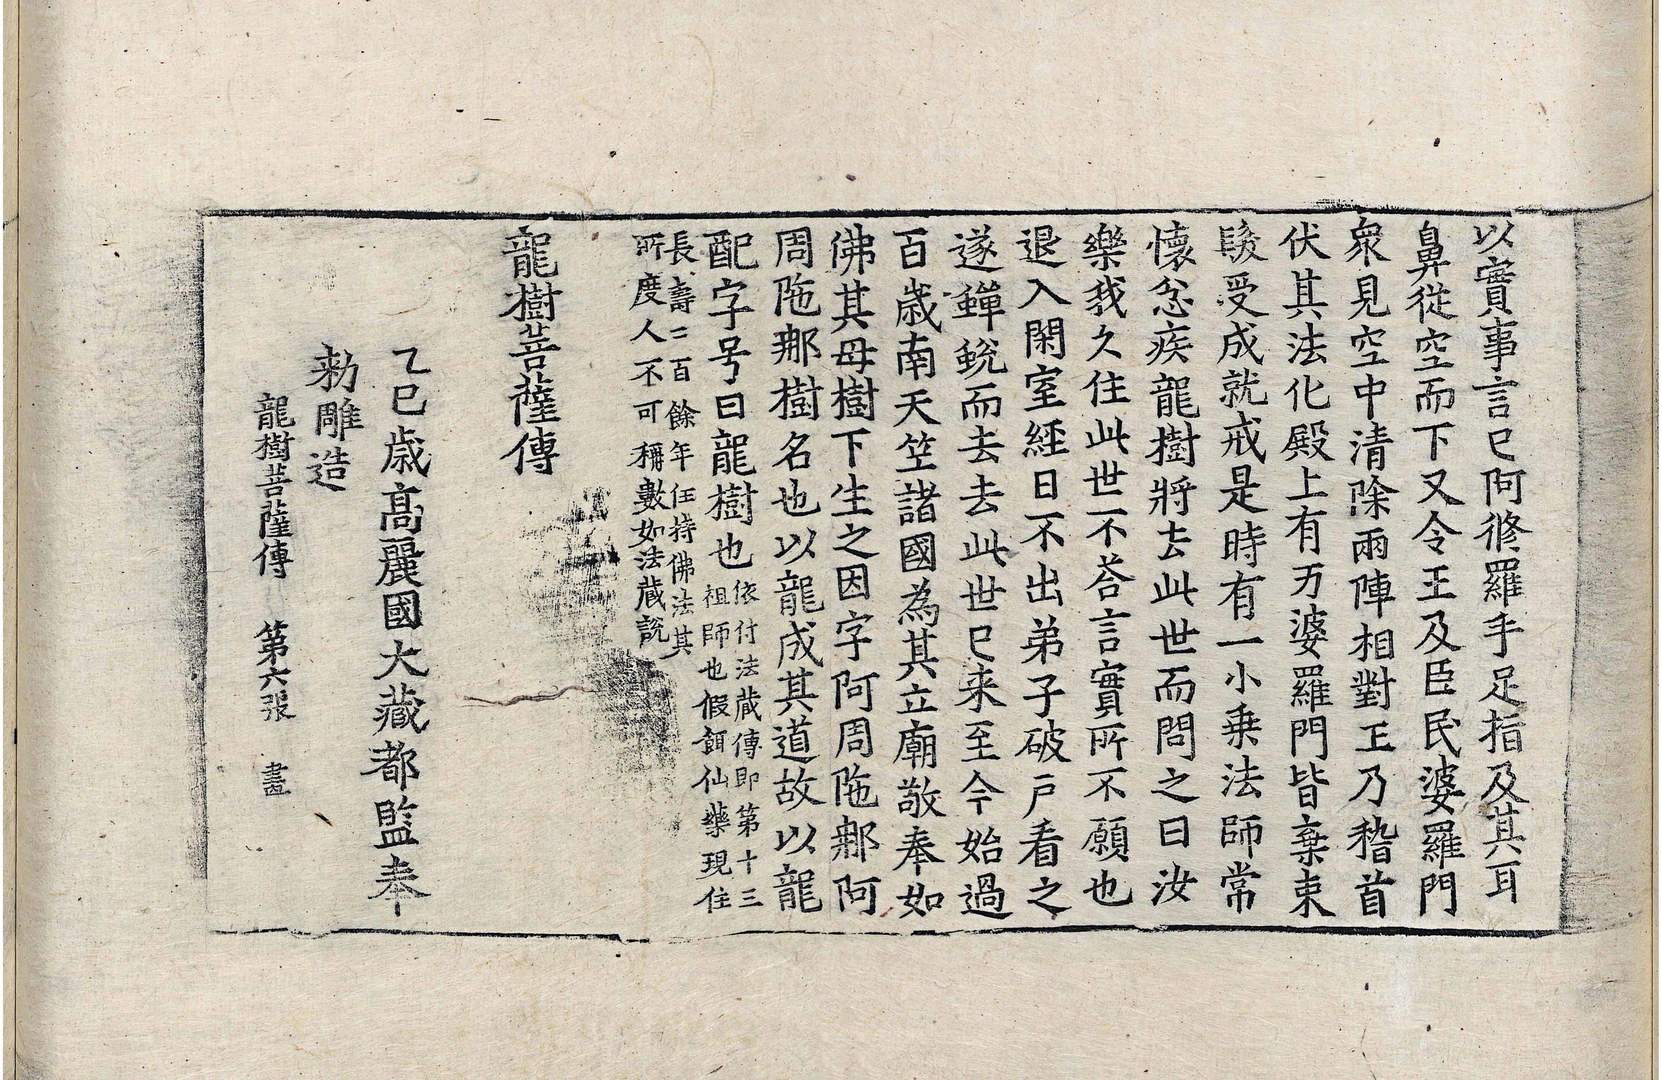 以實事言已阿修羅手足指及其耳
鼻從空而下又令王及臣民婆羅門
衆見空中清除兩陣相對王乃稽首
伏其法化殿上有万婆羅門皆棄束
髮受成就戒是時有一小乗法師常
懷忿疾龍樹將去此世而問之曰汝
樂我久住此世不荅言實所不願也
退入閑室經日不出弟子破戶看之
遂蟬蛻而去去此世已来至今始過
百歳南天笁諸國為其立廟敬奉如
佛其母樹下生之因字阿周陁那阿
周陁那樹名也以龍成其道故以龍
配字号曰龍樹也
依付法藏傳即第十三
祖師也假餌仙藥現住
長壽二百餘年任持佛法其
所度人不可稱數如法藏說
龍樹菩薩傳
乙巳歳高麗國大藏都監奉
勅雕造
龍樹菩薩傳 第六張 畵